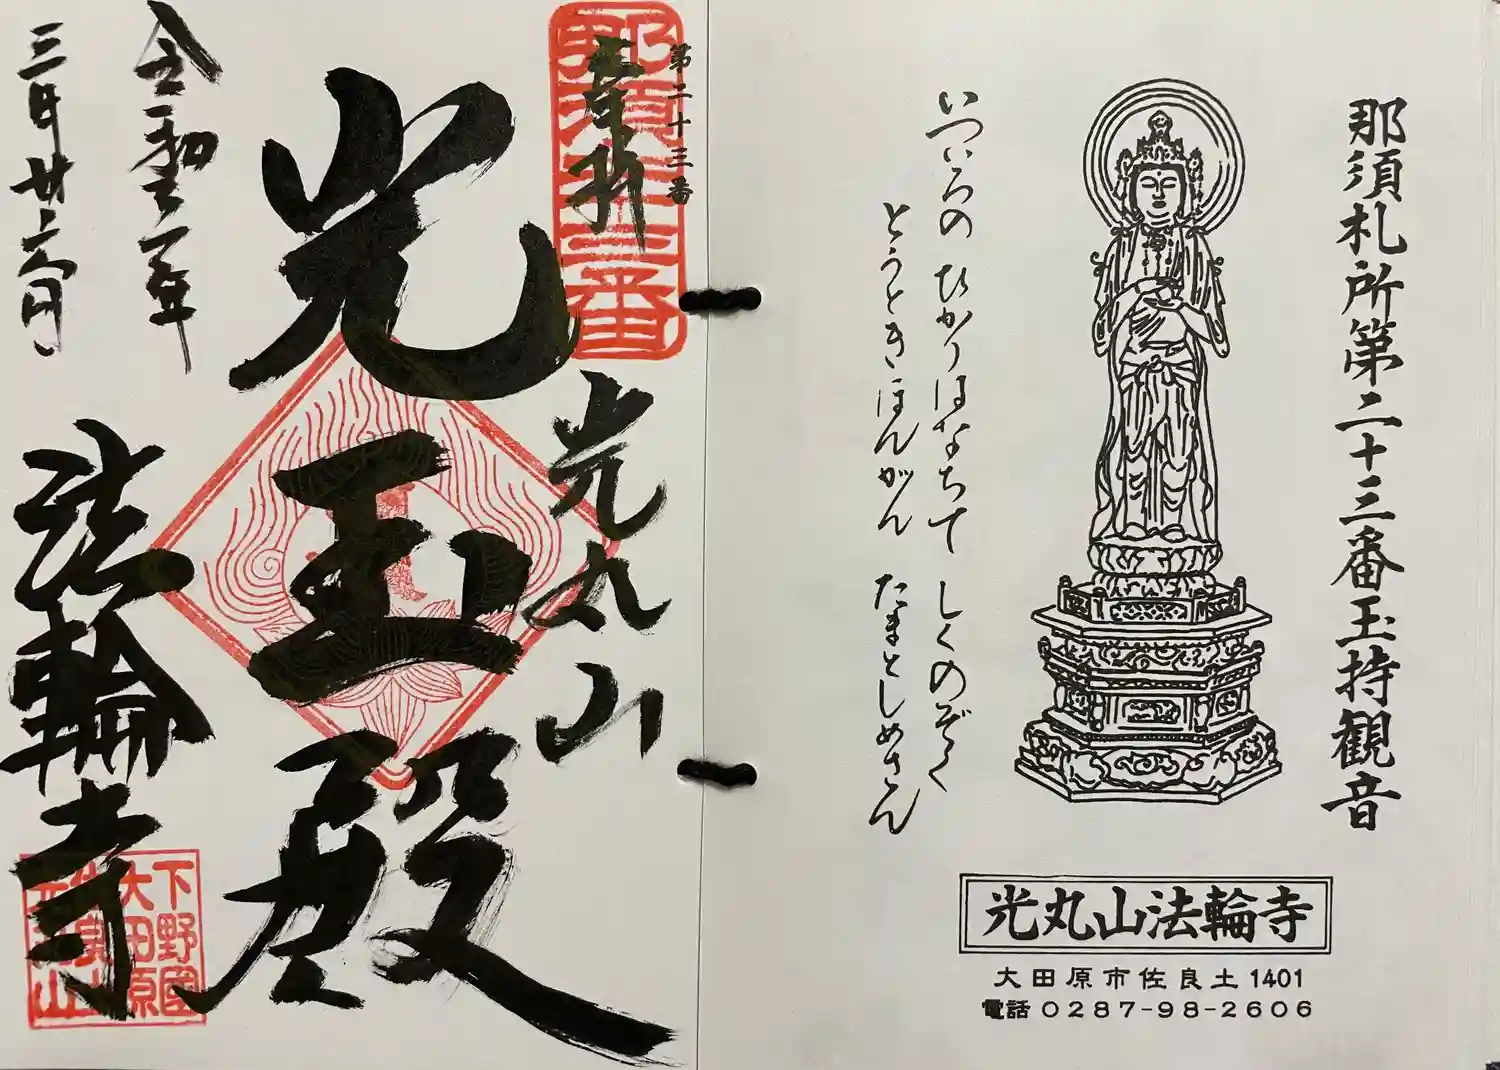 那須札所第二十三番玉持観音
いついろの ひかりはなちて しくのぞく
とうときほんがん たまとしめさん
光丸山法輪寺
大田原市佐良土1401
電話0287-98-2606
第二十三番
奉拝
光丸山
光玉殿
令和 年
三月廿六日
法輪寺
下野国
大田原